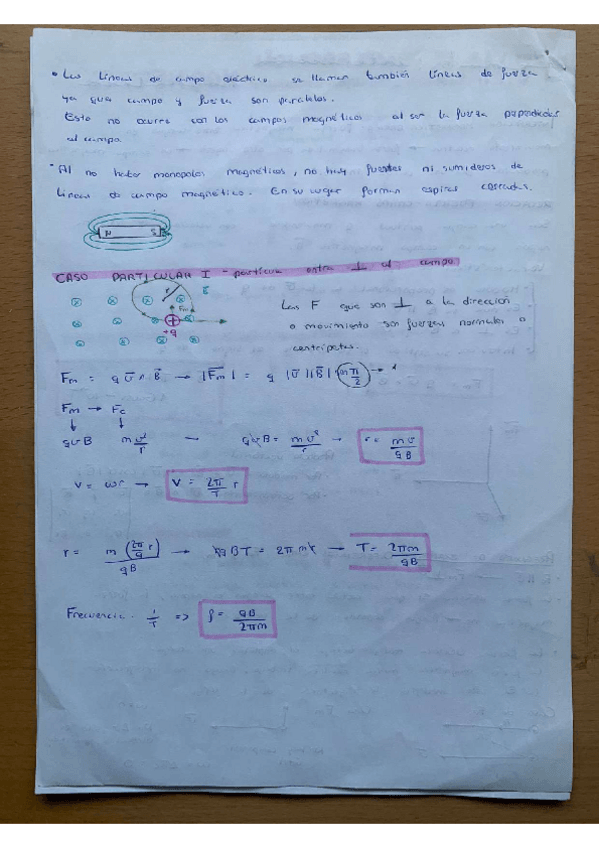 • Las líneas de campo eléctrico se llaman también líneas de fuerza
ya que campo y fuerza son paralelos.
Esto no ocurre con los campos magnéticos al ser la fuerza perpendicular
al campo.
• Al no haber monopolos magnéticos, no hay fuentes ni sumideros de
líneas de campo magnético. En su lugar forman espiras cerradas.
N S
CASO PARTICULAR I - partícula entra ⊥ al campo
r B⃗
Fm
+q
Las F que son ⊥ a la dirección
o movimiento son fuerzas normales o
centrípetas.
Fm = q v⃗ ∧ B⃗ → |F⃗m| = q |v⃗||B⃗| sin π/2 → 1
Fm → Fc
↓ ↓
qvB m v²/r → qvB = mv²/r → r = mv/qB
v = ωr → v = 2π/T r
r = m (2π/ r)/qB → qBT = 2πm → T = 2πm/qB
Frecuencia. 1/T => f = qB/2πm